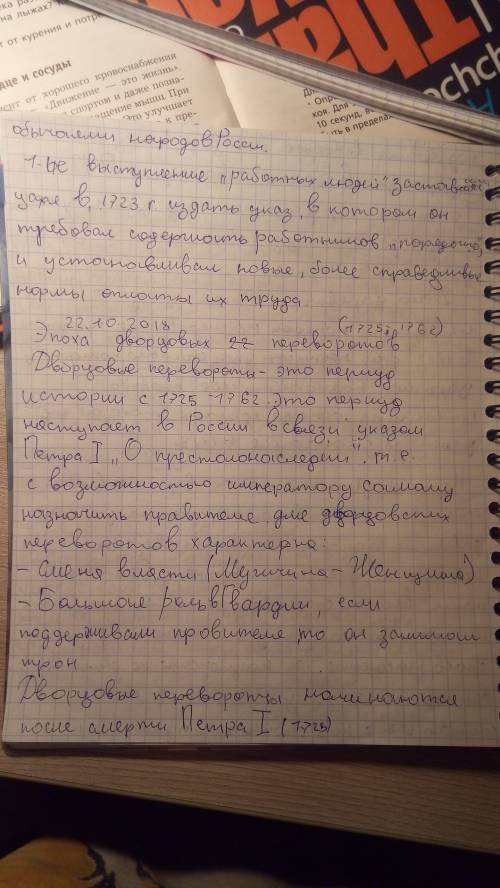 ека ра
на лыжах?
т от курения и потре
дце и сосуды
исит от хорошего кровоснабжения
«Движение — это жизнь».
спортом и даже позна-
щение мышц. При
Это улучшает
к пре-
Для
• Опре
коя. Для
10 секунд, в
ыть в предела
обычаями народов России.
1-ые выступление "работных людей" заставило
царя в 1723 г. издать указ, в котором он
требовал содержать работников "порядочно"
и устанавливал новые, более справедливые
нормы оплаты их труда
22.10.2018
(1725-1762)
Эпоха дворцовых переворотов
Дворцовые перевороты - это период
истории с 1725-1762. Это период
наступает в России в связи указом
Петра I "О престолонаследии". т.е.
с возможностью императору самому
назначить правителе. для дворцовских
переворотов характерна:
- Смена власти (Мужчина - Женщина)
- Большая роль в Гвардии, если
поддерживали провителе, то он занимал
трон
Дворцовые перевороты начинаются
после смерти Петра I (1725)